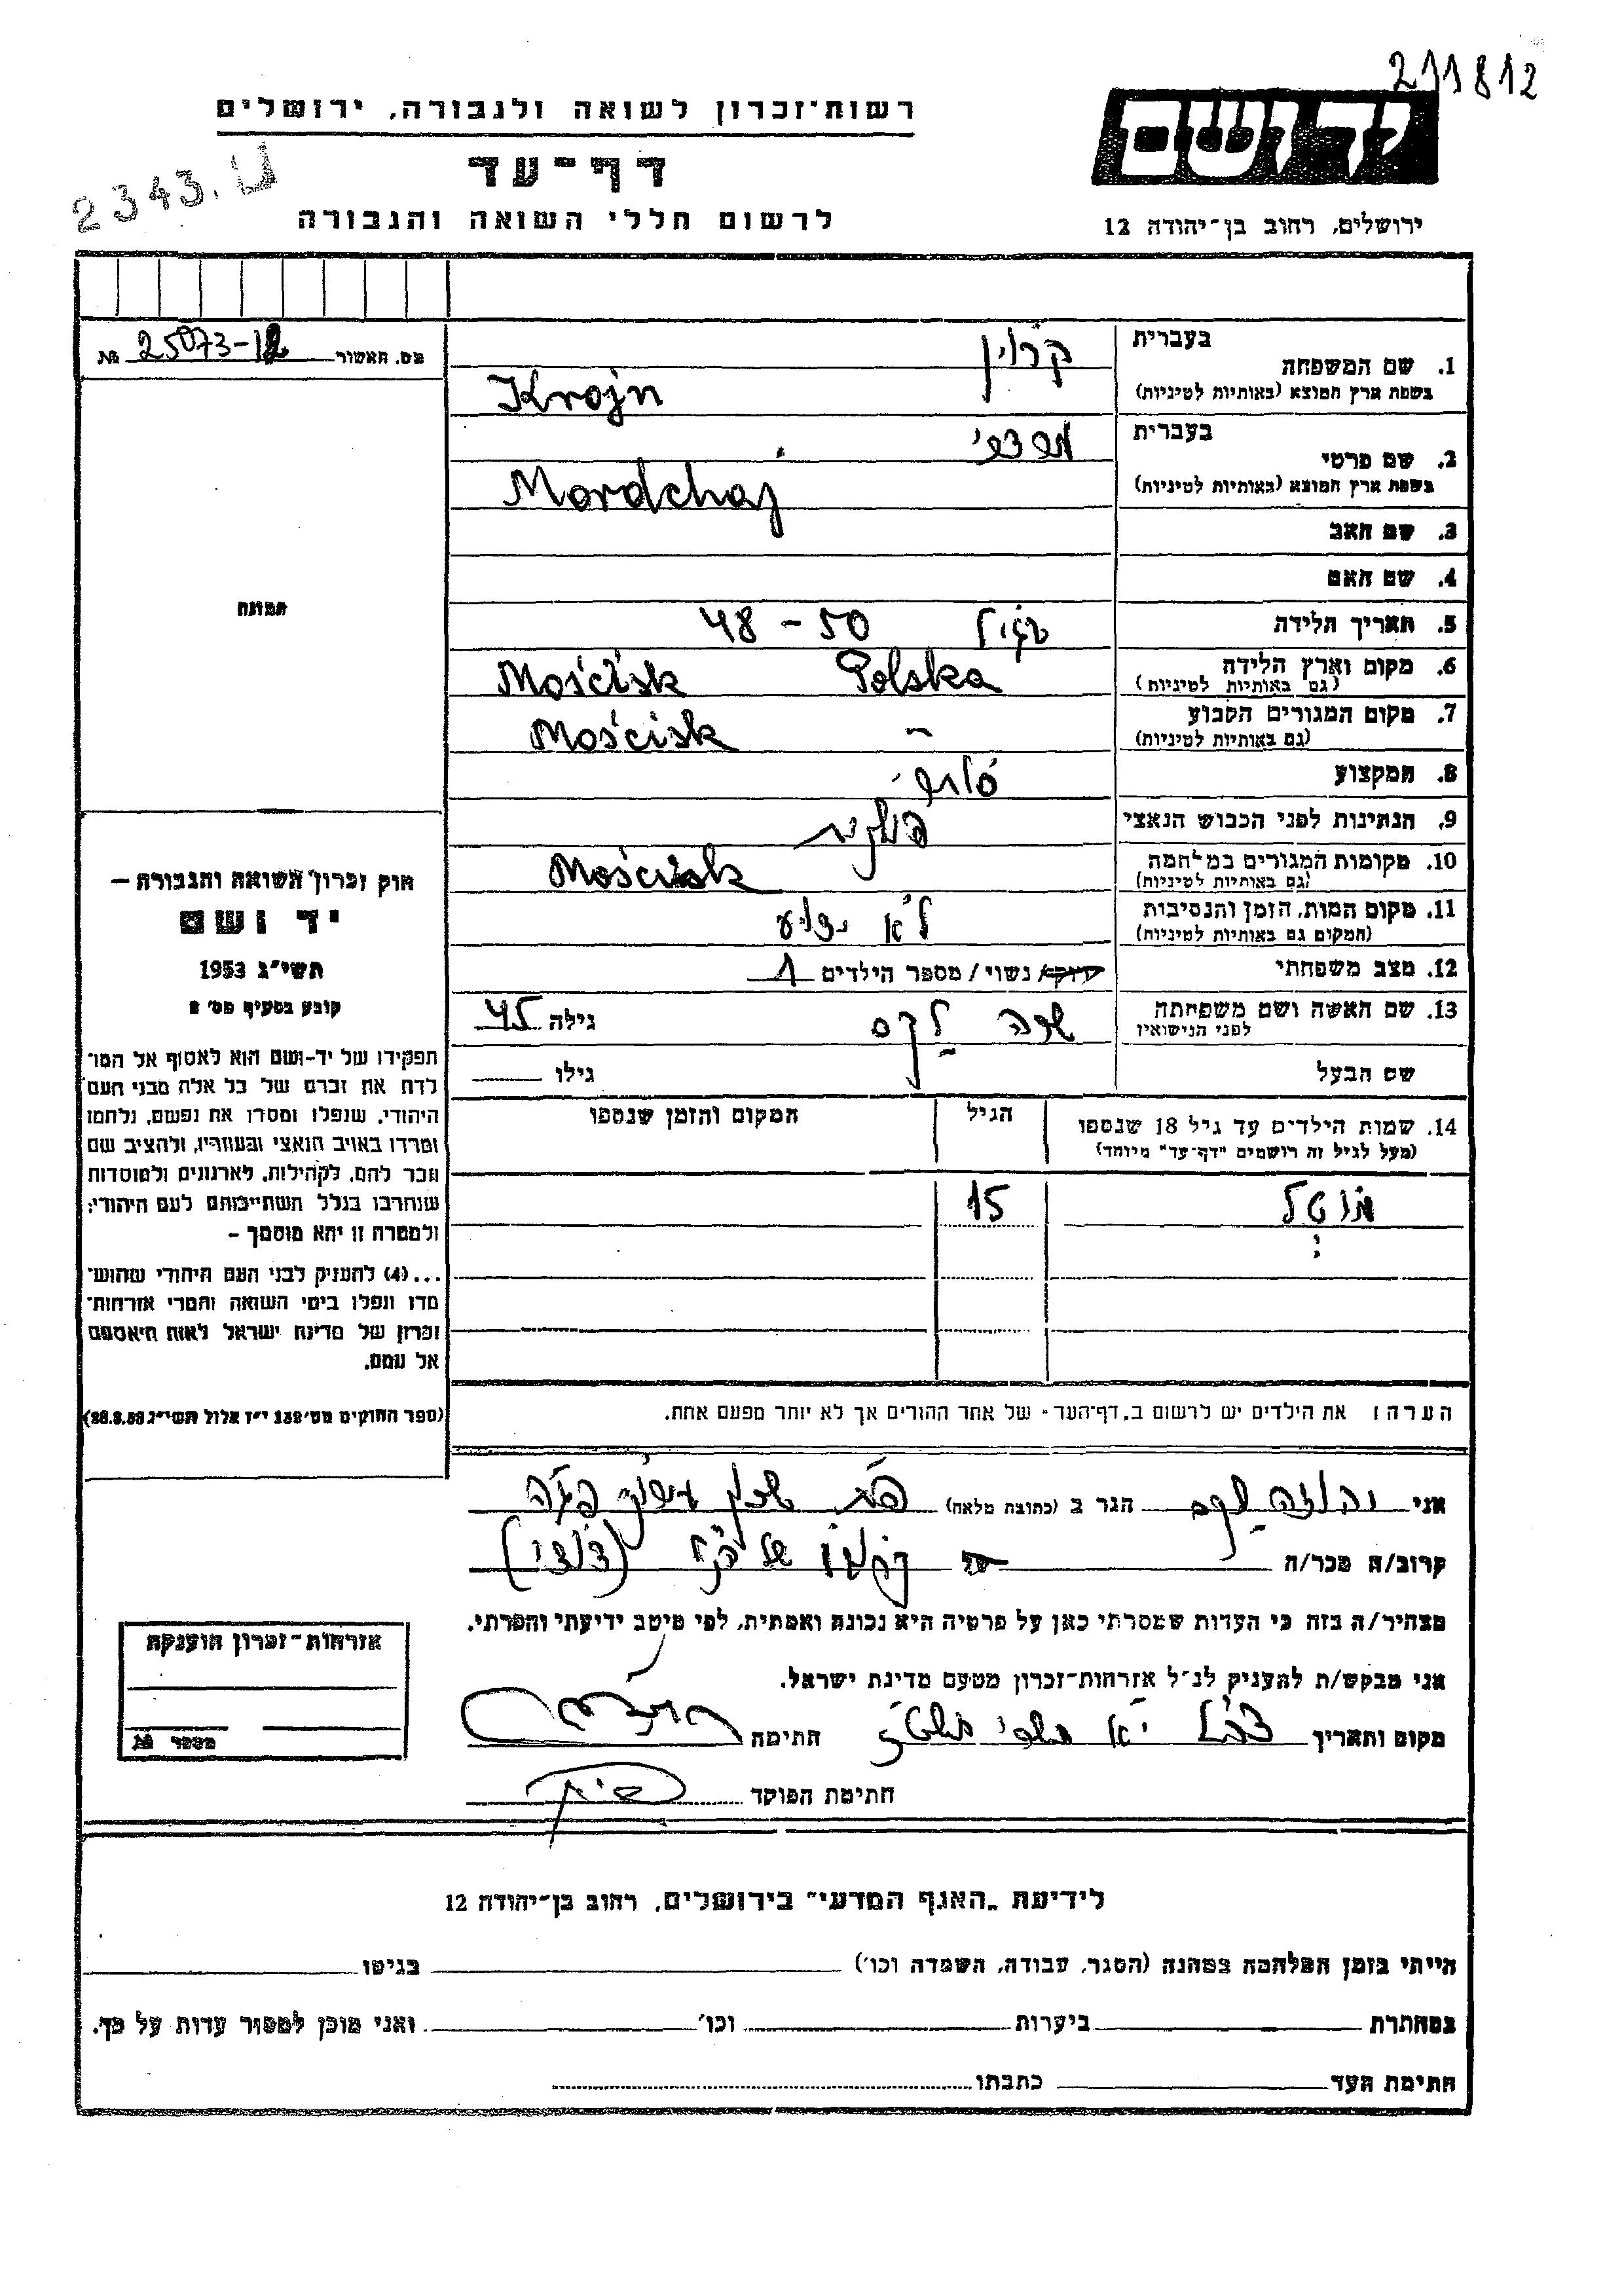 211812
רשות־זכרון לשואה ולגבורה, ירושלים
יד ושם
דף־עד
2343.
לרשום חללי השואה והגבורה
ירושלים, רחוב בן־יהודה 12
מס. האשור 25073-12 №
תמונה
חוק זכרון השואה והגבורה —
יד ושם
תשי״ג 1953
קובע בסעיף מס׳ 2
תפקידו של יד-ושם הוא לאסוף אל המו־
לדת את זכרם של כל אלה מבני העם
היהודי, שנפלו ומסרו את נפשם, נלחמו
ומרדו באויב הנאצי ובעוזריו, ולהציב שם
וזכר להם, לקהילות, לארגונים ולמוסדות
שנחרבו בגלל השתייכותם לעם היהודי;
ולמטרה זו יהא מוסמך —
...(4) להעניק לבני העם היהודי שהוש־
מדו ונפלו בימי השואה והמרי אזרחות־
זכרון של מדינת ישראל לאות היאספם
אל עמם.
(ספר החוקים מס׳ 132 י״ז אלול תשי״ג 28.8.53)
1. שם המשפחה
בעברית
קרוין
בשפת ארץ המוצא (באותיות לטיניות)
Krojn
2. שם פרטי
בעברית
מרדכי
בשפת ארץ המוצא (באותיות לטיניות)
Mordchaj
3. שם האב
4. שם האם
5. תאריך הלידה
בגיל 48 - 50
6. מקום וארץ הלידה
(גם באותיות לטיניות)
Mościsk Polska
7. מקום המגורים הקבוע
(גם באותיות לטיניות)
Mościsk
8. המקצוע
סוחר
9. הנתינות לפני הכבוש הנאצי
פולנית
10. מקומות המגורים במלחמה
(גם באותיות לטיניות)
Mościsk
11. מקום המות, הזמן והנסיבות
(המקום גם באותיות לטיניות)
לא ידוע
12. מצב משפחתי
רווק/ נשוי/ מספר הילדים 1
13. שם האשה ושם משפחתה
לפני הנישואין
שרה גילה 45
שם הבעל
גילו
14. שמות הילדים עד גיל 18 שנספו
(מעל לגיל זה רושמים "דף-עד" מיוחד)
הגיל
המקום והזמן שנספו
מוטל 15
הערה: את הילדים יש לרשום ב„דף־העד״ של אחד ההורים אך לא יותר מפעם אחת.
אני הגר ב (כתובת מלאה)
קרוב/ה מכר/ה של (דודי)
מצהיר/ה בזה כי העדות שמסרתי כאן על פרטיה היא נכונה ואמתית, לפי מיטב ידיעתי והכרתי.
אני מבקש/ת להעניק לנ״ל אזרחות־זכרון מטעם מדינת ישראל.
מקום ותאריך חתימה
חתימת הפוקד
אזרחות־זכרון הוענקה
מספר №
לידיעת „האגף המדעי״ בירושלים, רחוב בן־יהודה 12
הייתי בזמן המלחמה במחנה (הסגר, עבודה, השמדה וכו׳) בגיטו
במחתרת ביערות וכו׳ ואני מוכן למסור עדות על כך.
חתימת העד כתבתו